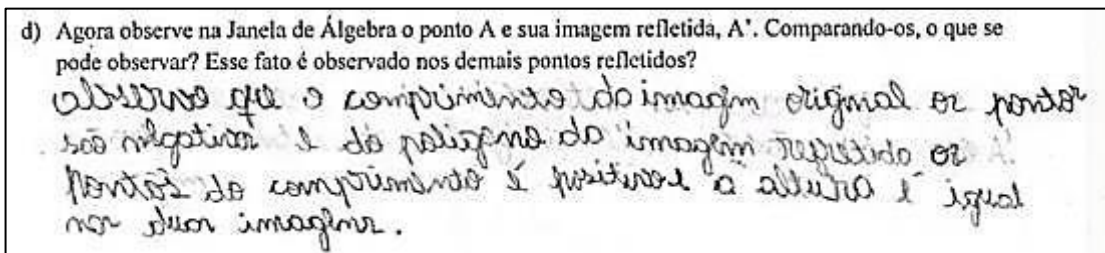 d) Agora observe na Janela de Álgebra o ponto A e sua imagem refletida, A'. Comparando-os, o que se
pode observar? Esse fato é observado nos demais pontos refletidos?
observo que o comprimento da imagem original os pontos
são negativos e do poligono da imagem refletido os
pontos do comprimento é positivo e a altura é igual
nas duas imagens.